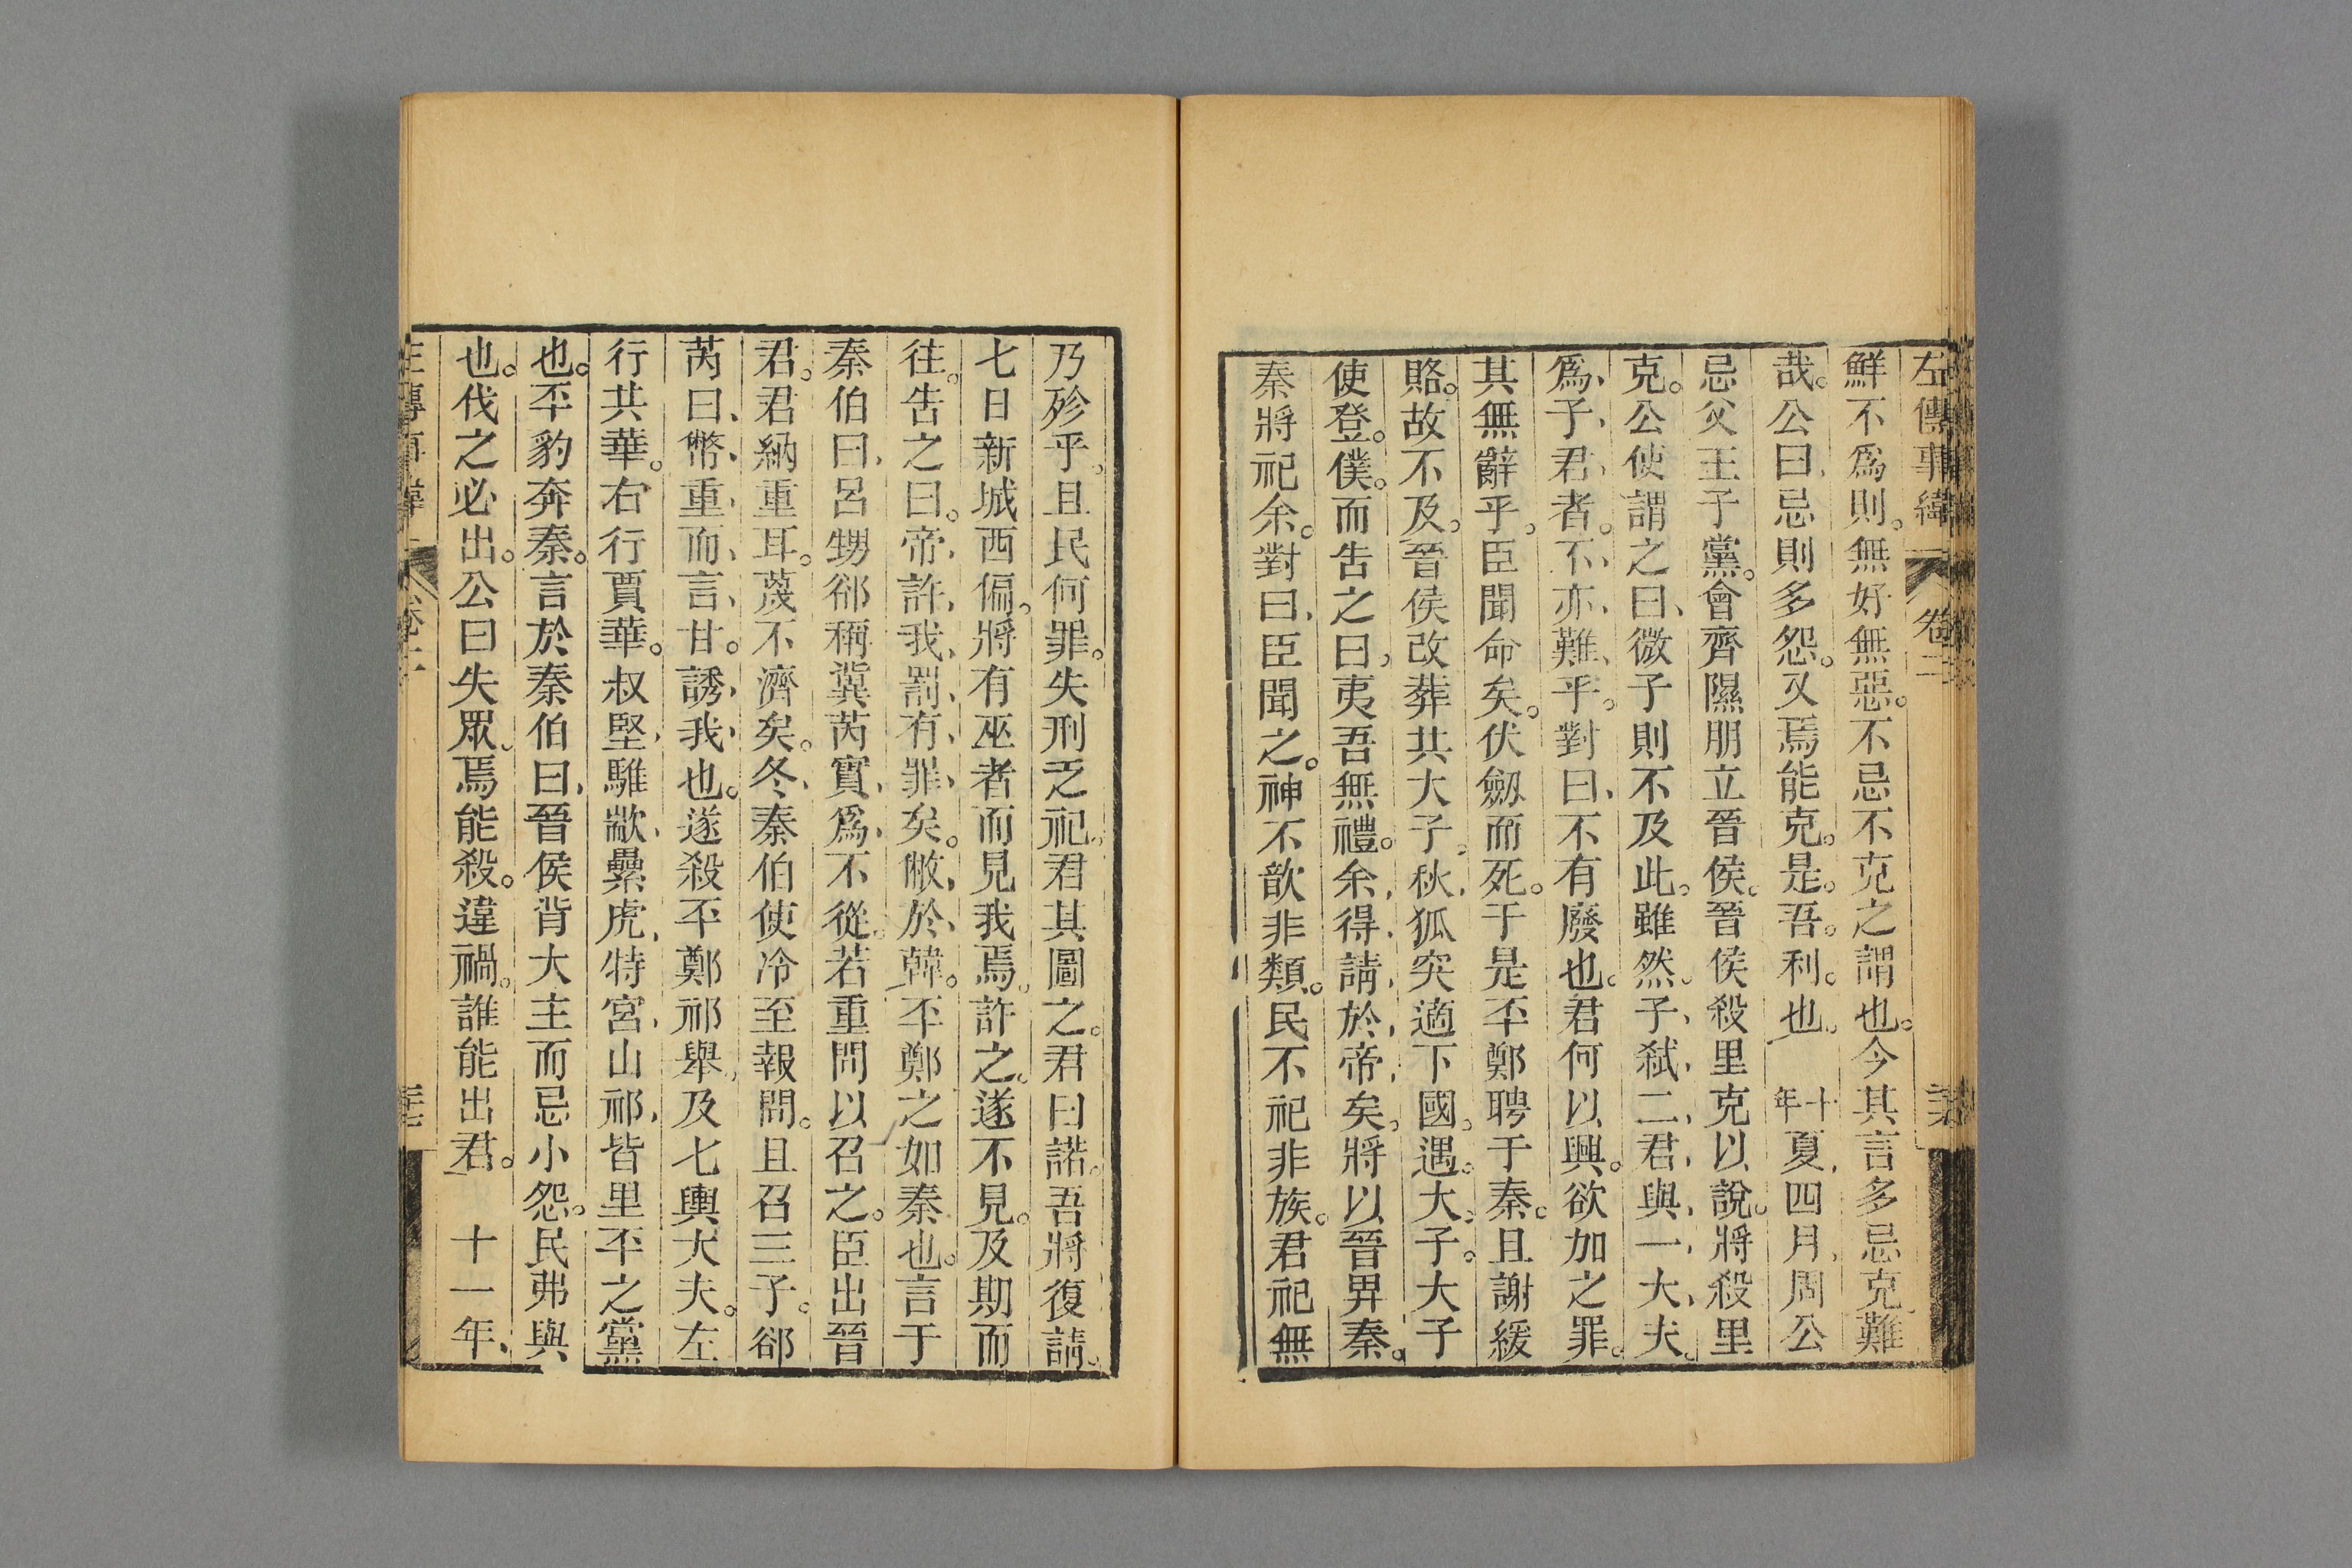 左傳事緯 卷二
鮮不爲則。無好無惡。不忌不克之謂也。今其言多忌克難
哉。公曰、忌則多怨。又焉能克。是。吾。利。也。 十年夏、四月、周公
忌父王子黨。會齊隰朋立晉侯。晉侯殺里克以說。將殺里
克。公使謂之曰、微子則不及此。雖然。子、弑、二、君、與、一、大、夫。
爲、子、君、者。不、亦、難、乎。對曰、不有廢也。君何以興。欲加之罪。
其無辭乎。臣聞命矣。伏劔而死。于是丕鄭聘于秦。且謝緩
賂。故不及。晉侯改葬共大子。秋、狐突適下國。遇。大。子。大子
使登。僕。而告之曰、夷吾無禮。余、得、請、於、帝、矣。將以晉畀秦。
秦將祀余。對曰、臣聞之。神不歆非類。民不祀非族。君祀無
乃殄乎。且民何罪。失刑乏祀。君其圖之。君曰諾。吾將復請。
七日新城西偏。將有巫者而見我焉。許之。遂不見。及期而
往。告之曰。帝、許、我、罰、有、罪、矣。敝、於、韓。丕鄭之如秦也。言于
秦伯曰、呂甥郤稱冀芮實、爲、不從。若重問以召之。臣出晉
君。君納重耳。蔑不濟矣。冬、秦伯使冷至報問。且召三子。郤
芮曰、幣、重、而、言、甘。誘、我、也。遂殺丕鄭祁舉、及七輿大夫。左
行共華。右行賈華。叔堅、騅歂、纍虎、特宮、山祁、皆里丕之黨
也。丕豹奔秦。言於秦伯曰、晉侯背大主而忌小怨。民弗與
也。伐之必出。公曰失眾、焉能殺。違禍。誰能出君。 十一年、